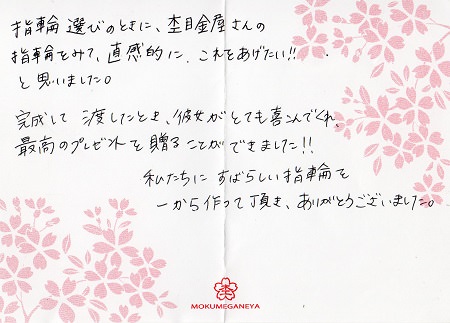 指輪選びのときに、杢目金屋さんの
指輪をみて、直感的に、これをあげたい!!
と思いました。
完成して渡したとき、彼女がとても喜んでくれ、
最高のプレゼントを贈ることができました!!
私たちにすばらしい指輪を
一から作って頂き、ありがとうございました。
MOKUMEGANEYA